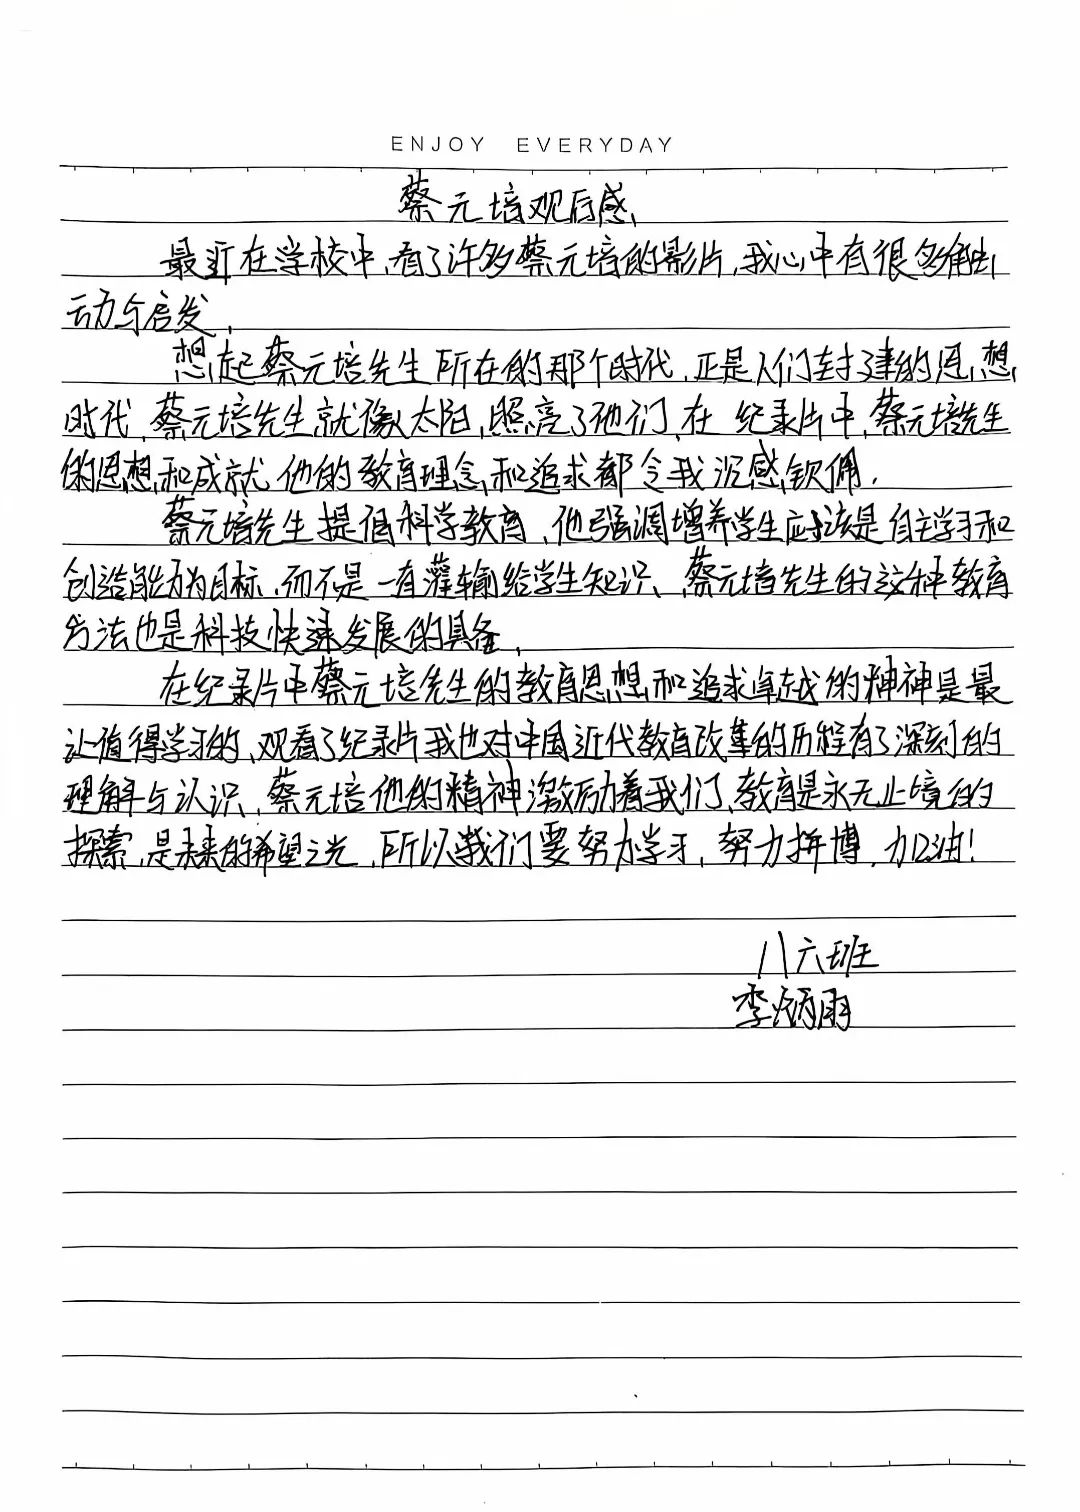 ENJOY EVERYDAY
蔡元培观后感
最近在学校中,看了许多蔡元培的影片,我心中有很多触
动与启发,
想起蔡元培先生所在的那个时代,正是人们封建的思想
时代,蔡元培先生就像太阳,照亮了他们,在纪录片中,蔡元培先生
的思想和成就,他的教育理念,和追求都令我沉感钦佩.
蔡元培先生提倡科学教育,他强调增养学生应该是自主学习和
创造能力为目标,而不是一直灌输给学生知识、蔡元培先生的这种教育
方法也是科技快速发展的具备,
在纪录片中蔡元培先生的教育思想和追求卓越的精神是最
让值得学习的,观看了纪录片我也对中国近代教育改革的历程有了深刻的
理解与认识,蔡元培他的精神激励着我们,教育是永无止境的
探索,是未来的希望之光,所以我们要努力学习,努力拼博,加油!
八六班
李炳雨